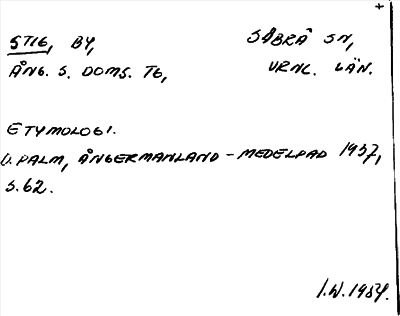 +
STIG, BY, SÅBRÅ SN,
ÅNG. S. DOMS. TG, VRNL. LÄN.
ETYMOLOGI.
D. PALM, ÅNGERMANLAND - MEDELPAD 1937,
S.62.
I.W.1954.